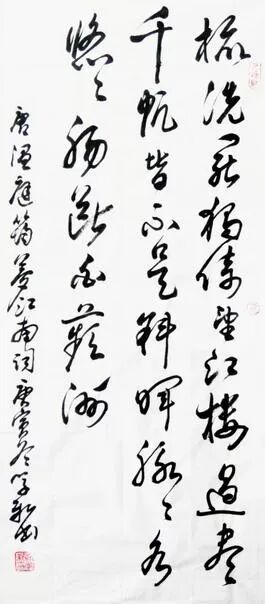 梳洗罷獨倚望江樓過盡
千帆皆不是斜暉脉々水
悠々腸斷白蘋洲
唐温庭筠夢江南詞庚寅冬書